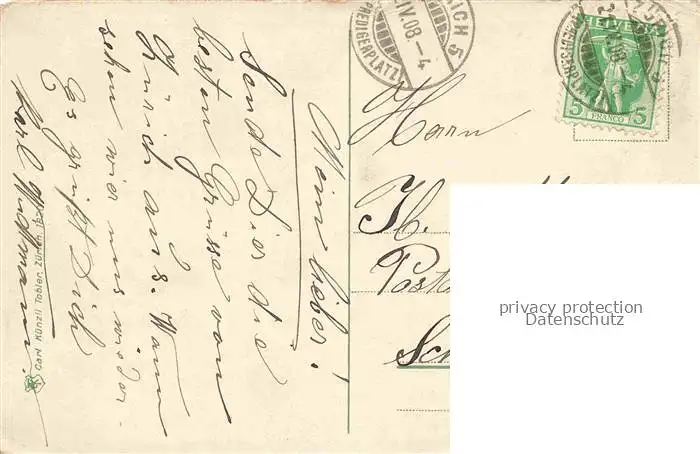 Mein lieber!
Sende Dir die
besten Grüsse von
Zürich aus. Wann
sehen wir uns wieder-
?
Es grüßt Dich
Karl
Carl Künzli Tobler, Zürich
ZÜRICH 5
IV.08.-4
PREDIGERPLATZ
HELVETIA
5 FRANCO 5
Herrn
H.
Post
Sch
privacy protection
Datenschutz